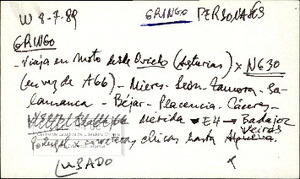 W 8-7-89 GRINGO PERSONAJES
GRINGO
- Viaja en moto desde Oviedo (Asturias) x N630
(en vez de A66) - Mieres - León - Zamora - Sa-
lamanca - Béjar - Plasencia - Cáceres -
Mérida - E4 → Badajoz
Portugal x carreteras chicas hasta Veiros
USADO